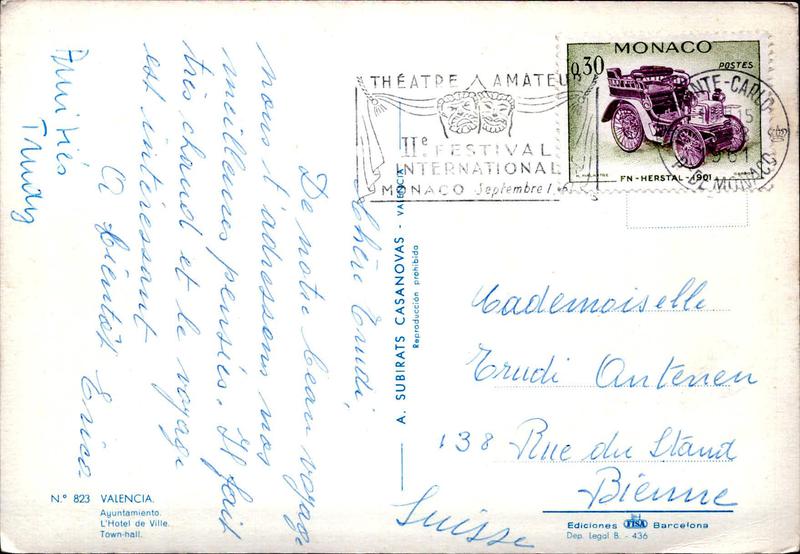 Chère Trudi,
De notre beau voyage
nous t'adressons nos
meilleures pensées. Il fait
très chaud et le voyage
est intéressant
A bientôt Erica
Amitiés
Trudy
N.º 823 VALENCIA.
Ayuntamiento.
L'Hotel de Ville.
Town-hall.
A. SUBIRATS CASANOVAS - VALENCIA
Reproducción prohibida
THÉATRE AMATEUR
IIe FESTIVAL
INTERNATIONAL
MONACO Septembre
MONACO
0,30
POSTES
FN-HERSTAL-1901
MONTE-CARLO
15
1961
PTE DE MONACO
Mademoiselle
Trudi Antenen
138 Rue du Stand
Bienne
Suisse
Ediciones FISA Barcelona
Dep. Legal B. - 436